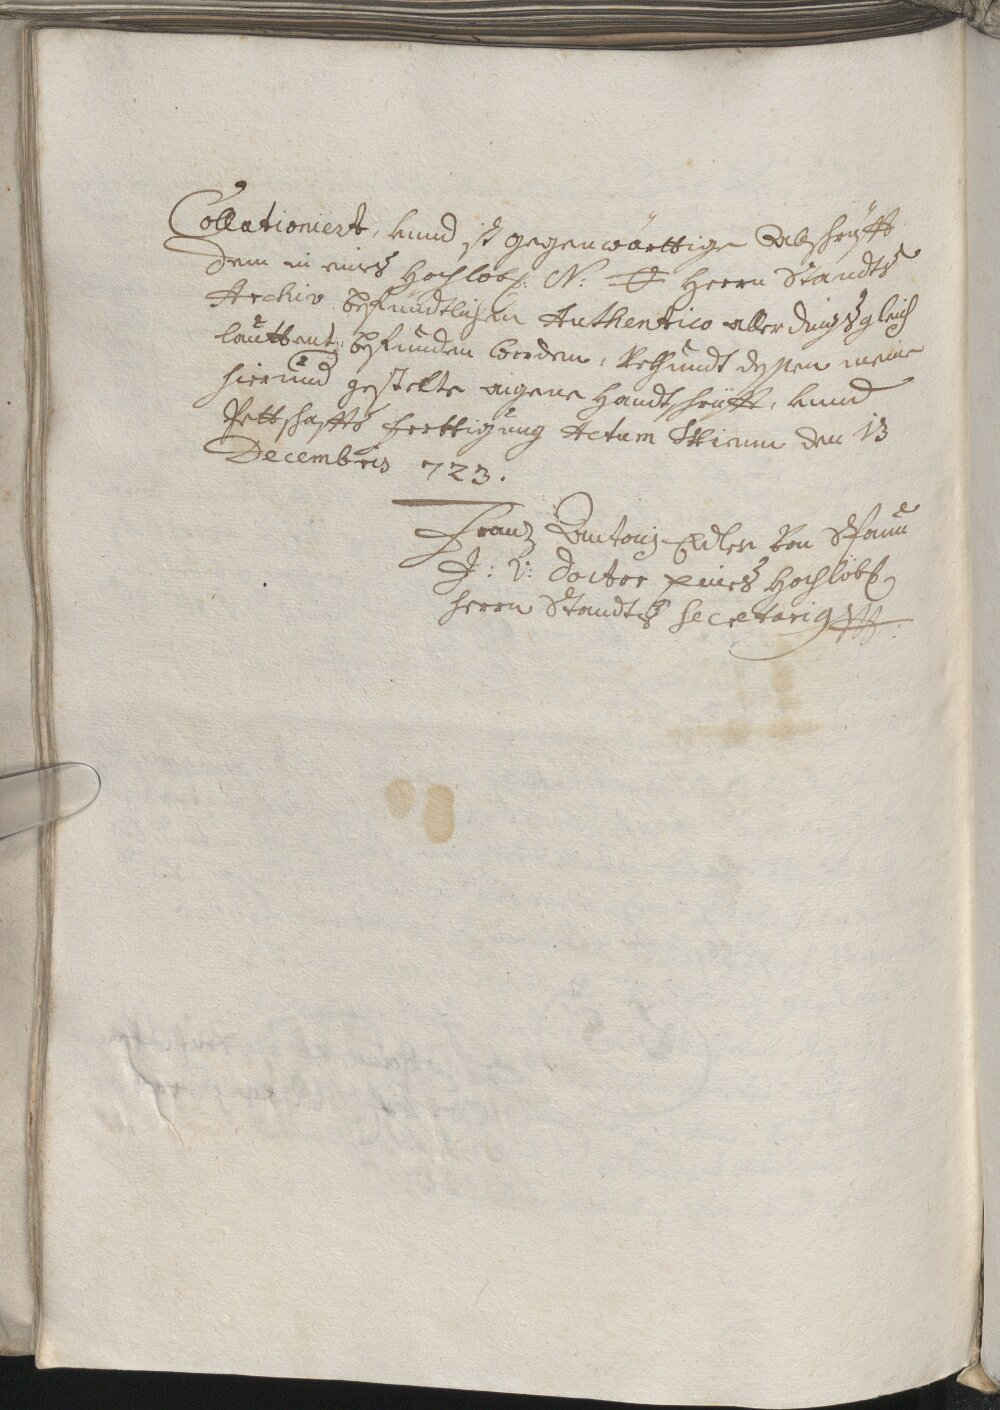 Collationiert, unnd ist gegenwörttige Abschrüfft
dem in eines Hochlöbl: N: Ö Herrn Standts
Archiv befündtlichen Authentico allerdings gleich
lauttent befunden worden, Uhrkundt dessen meine
hierund gestelte aigene Handtschrüfft, unnd
Pettschaffts Ferttigung Actum Wienn den 13
Decembris 723.
Franz Antonj Edler von Spaun
J: V: Doctor eines Hochlöbl
Herrn Standts Secretarig